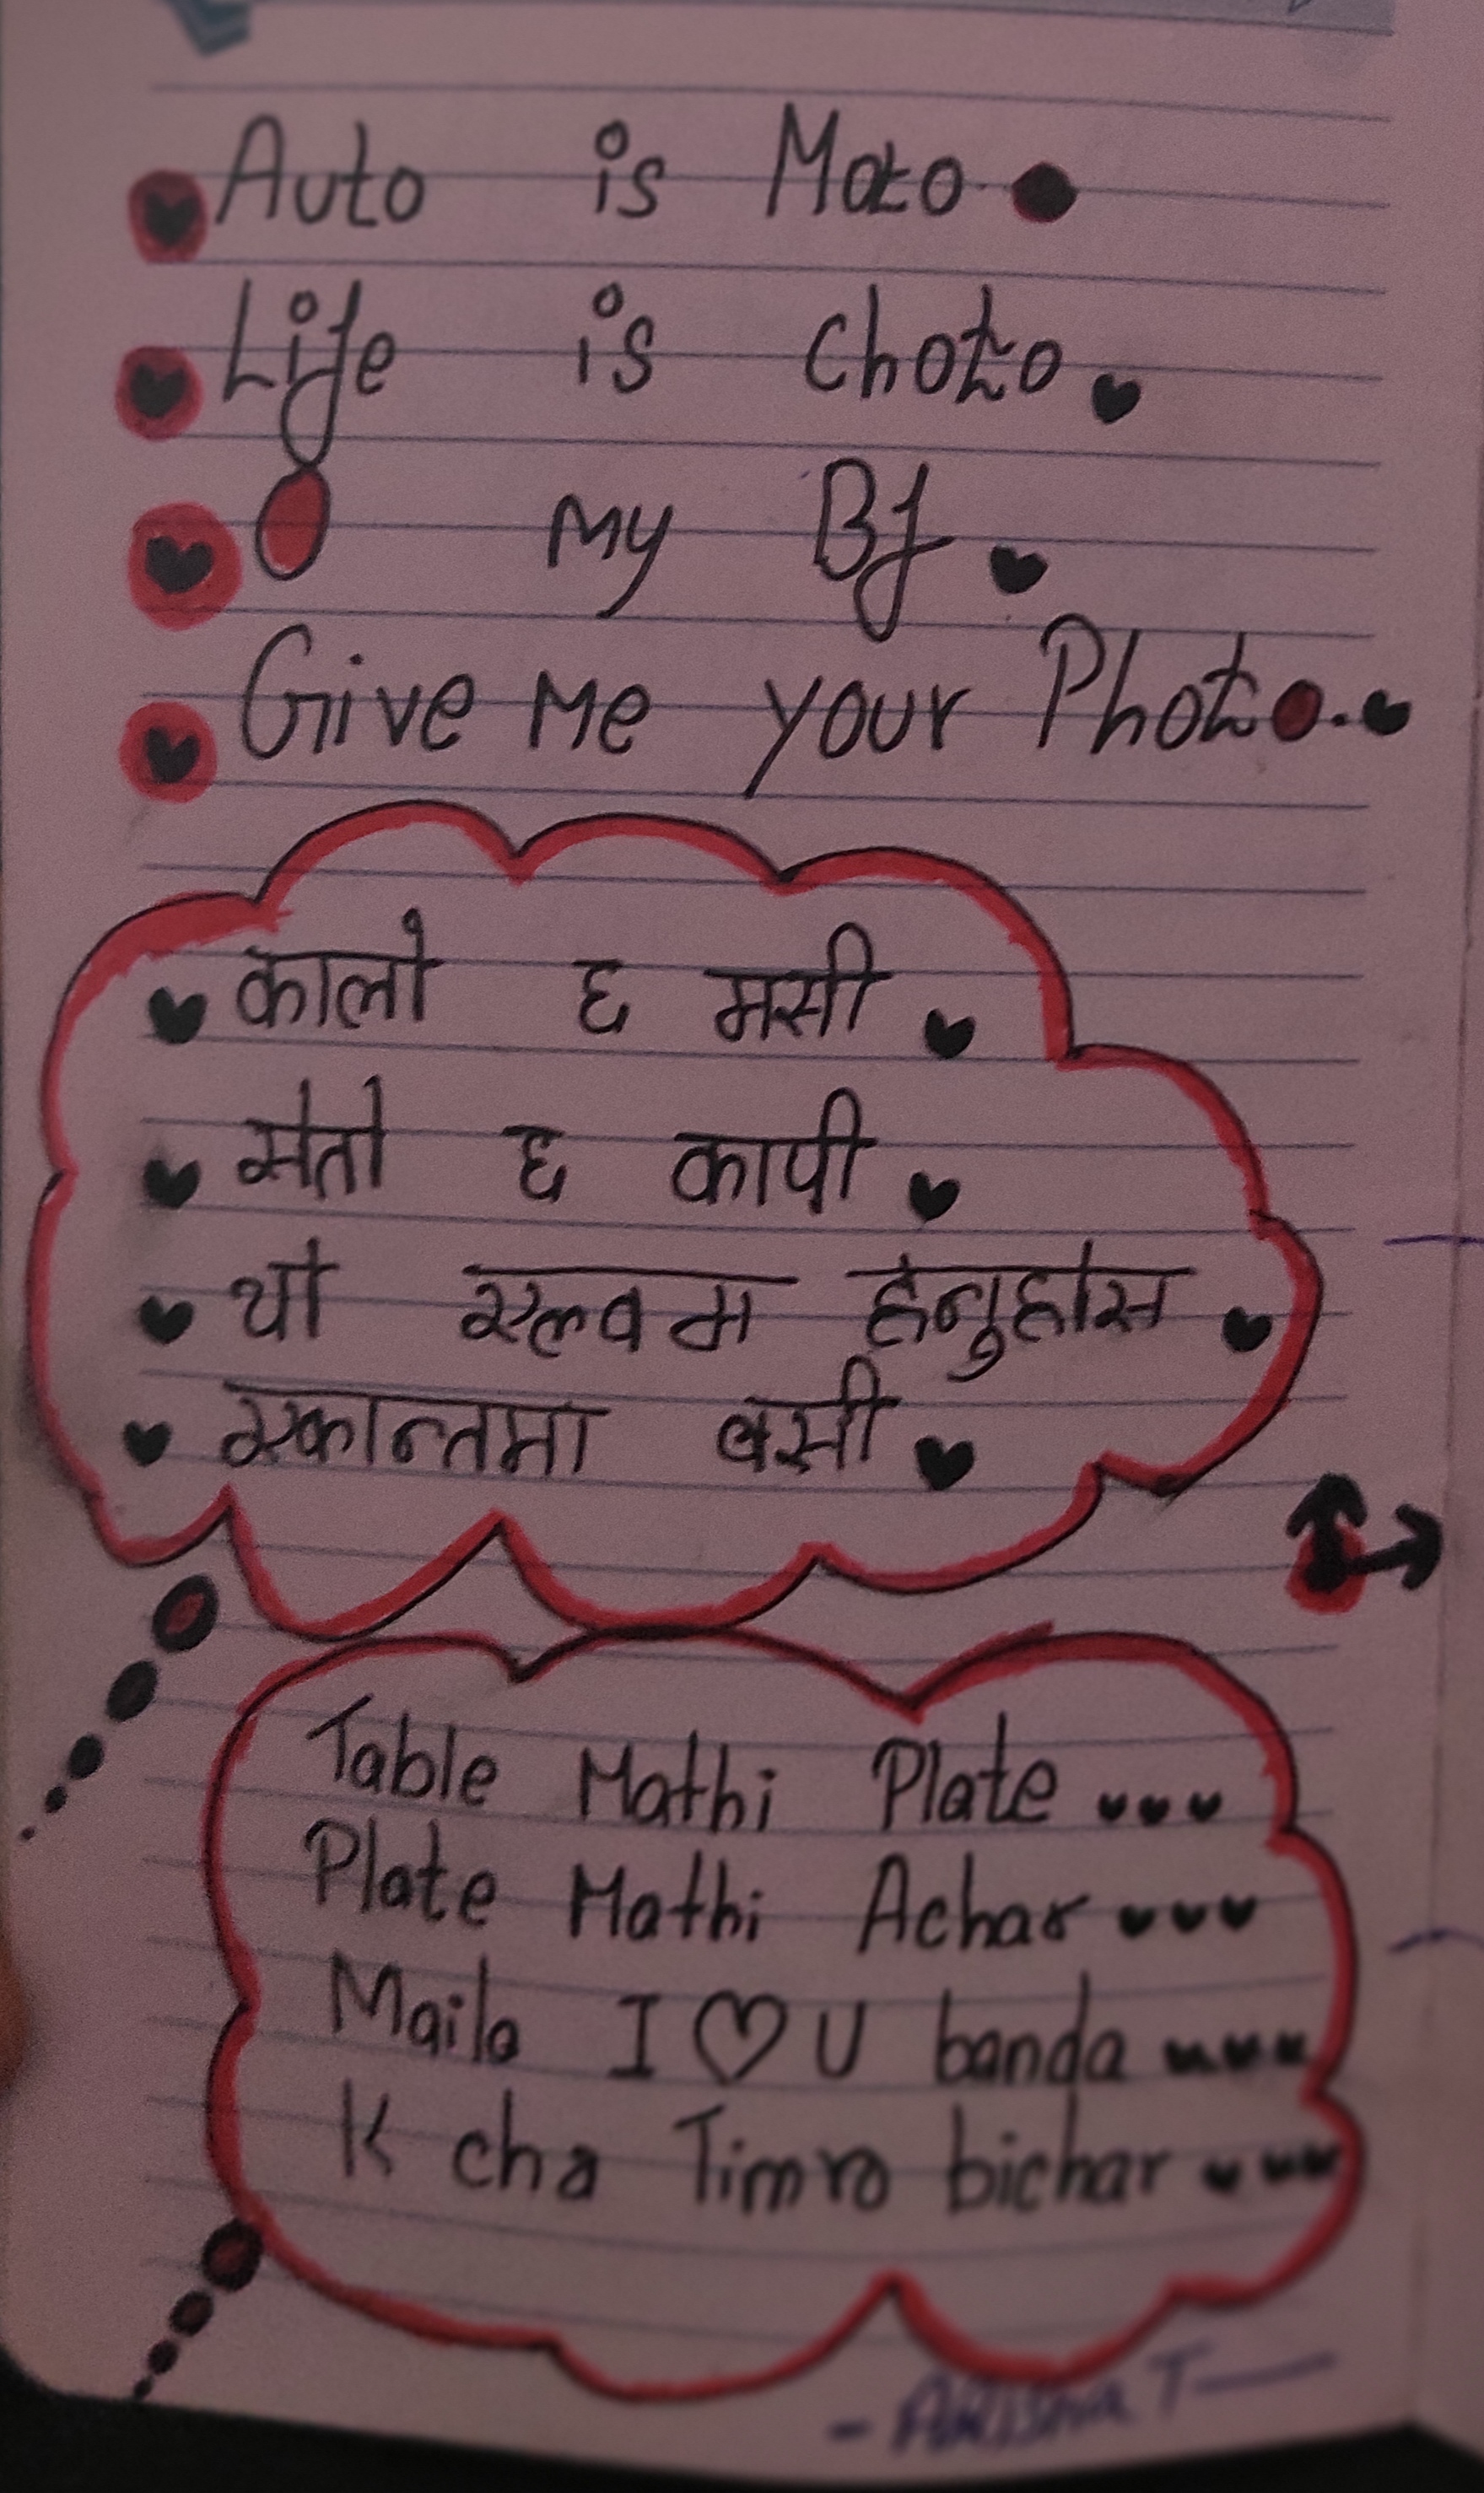 Auto is Moto
Life is Choto.
O my Bf
Give Me your Photo.
कालो छ मसी
सेतो छ कापी
यो एल्वम हेनुहोस
एकान्तमा बसी
Table Mathi Plate
Plate Mathi Achar
Maila I ♡ U banda
K cha Timro bichar